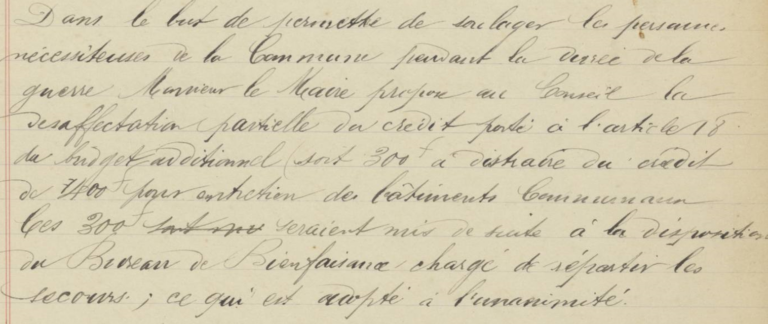 Dans le but de permettre de soulager les personnes
nécessiteuses de la Commune pendant la durée de la
guerre Monsieur le Maire propose au Conseil la
désaffectation partielle du crédit porté à l'article 18
du budget additionnel (soit 300f à distraire du crédit
de 1400f pour entretien des bâtiments Communaux
Ces 300f sont mis seraient mis de suite à la disposition
du Bureau de Bienfaisance chargé de répartir les
secours ; ce qui est adopté à l'unanimité.